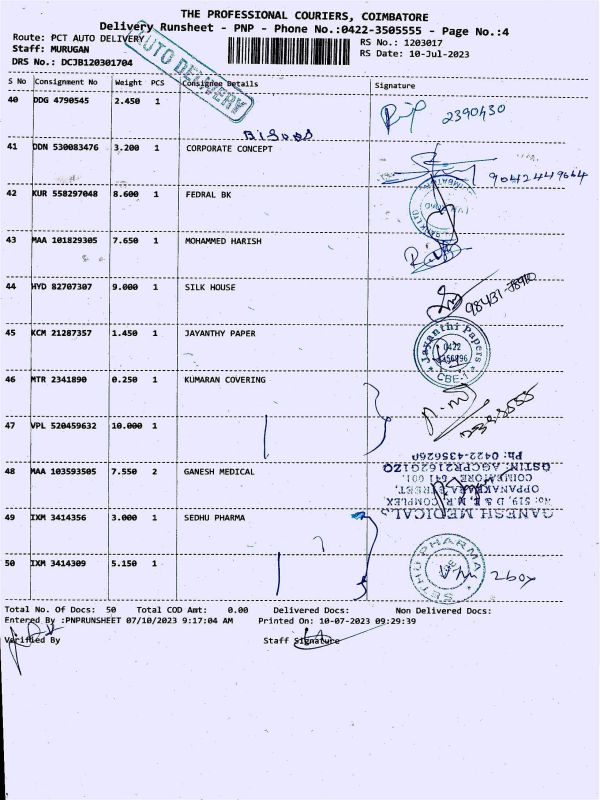 THE PROFESSIONAL COURIERS, COIMBATORE
Delivery Runsheet - PNP - Phone No.:0422-3505555 - Page No.:4
Route: PCT AUTO DELIVERY
RS No.: 1203017
Staff: MURUGAN
RS Date: 10-Jul-2023
DRS No.: DCJB120301704
AUTO DELIVERY
S No Consignment No Weight PCS Consignee Details Signature
40 DDG 4790545 2.450 1
2390430
41 DDN 530083476 3.200 1 CORPORATE CONCEPT
9042449664
42 KUR 558297048 8.600 1 FEDRAL BK
43 MAA 101829305 7.650 1 MOHAMMED HARISH
44 HYD 82707307 9.000 1 SILK HOUSE
45 KCM 21287357 1.450 1 JAYANTHY PAPER
Jayanthi Papers
0422
CBE-1
46 MTR 2341890 0.250 1 KUMARAN COVERING
47 VPL 520459632 10.000 1
48 MAA 103593505 7.550 2 GANESH MEDICAL
GANESH MEDICALS
No: 519, D & E, M.R. COMPLEX,
OPPANAKARA STREET,
COIMBATORE - 641 001.
GSTIN: AGCPR2162G1ZO
Ph: 0422-4356260
49 IXM 3414356 3.000 1 SEDHU PHARMA
50 IXM 3414309 5.150 1
SETHU PHARMA
2 box
Total No. Of Docs: 50 Total COD Amt: 0.00 Delivered Docs: Non Delivered Docs:
Entered By :PNPRUNSHEET 07/10/2023 9:17:04 AM Printed On: 10-07-2023 09:29:39
Verified By Staff Signature